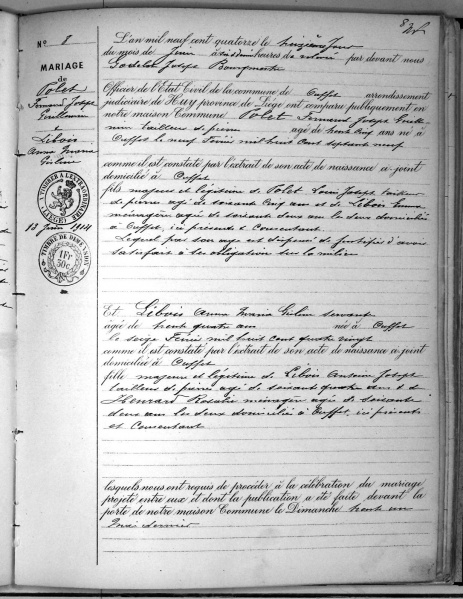 N° 8
MARIAGE
de
Polet
Fernand Joseph
Guillaume
&
Lebois
Anna Maria
13 Juin 1914
TIMBRE DE DIMENSION
1 Fr
30 c
L'an mil neuf cent quatorze le treizième jour
du mois de Juin à heures de relevée par devant nous
Joseph
Officier de l'Etat Civil de la commune de Ouffet arrondissement
judiciaire de Huy province de Liége ont comparu publiquement en
notre maison Commune Polet Fernand Joseph
tailleur de pierre âgé de trente cinq ans né à
Ouffet le neuf Février mil huit cent septante neuf
comme il est constaté par l'extrait de son acte de naissance ci-joint
domicilié à Ouffet
fils majeur et légitime de Polet Louis Joseph tailleur
de pierre âgé de soixante cinq ans et de Lebois
ménagère âgée de soixante deux ans les deux domiciliés
à Ouffet, ici présents et Consentant
Lequel par son age est dispensé de justifier d'avoir
satisfait à ses obligations sur la milice
Et Lebois Anna Maria servante
âgée de trente quatre ans née à Ouffet
le seize Février mil huit cent quatre vingt
comme il est constaté par l'extrait de son acte de naissance ci-joint
domiciliée à Ouffet
fille majeure et légitime de Lebois Antoine Joseph
tailleur de pierre âgé de soixante quatre ans et de
Henrard Rosalie ménagère âgée de soixante
deux ans les deux domiciliés à Ouffet, ici présents
et Consentant
lesquels nous ont requis de procéder à la célébration du mariage
projeté entre eux et dont la publication a été faite devant la
porte de notre maison Commune le Dimanche trente un
Mai dernier